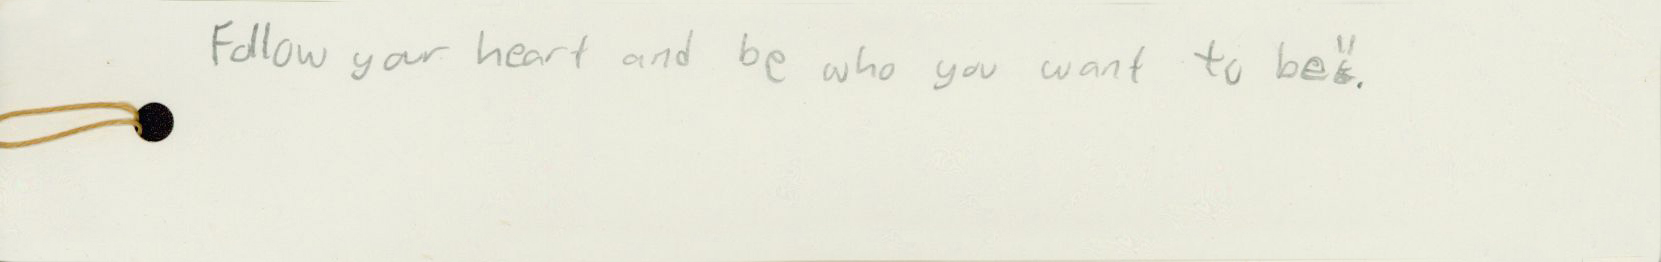 Follow your heart and be who you want to be".